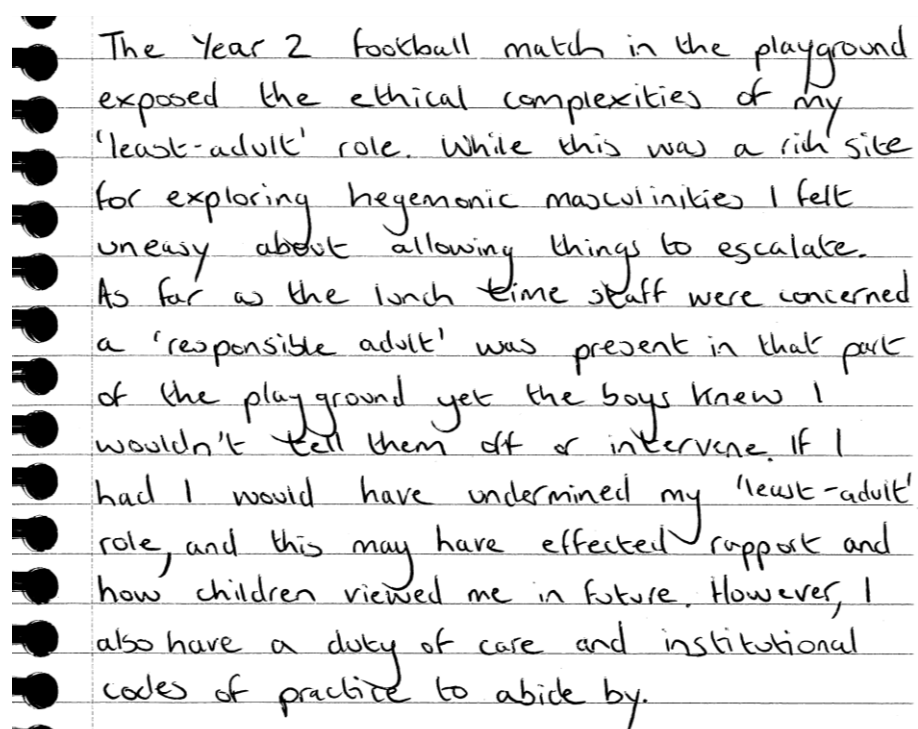 The Year 2 football match in the playground
exposed the ethical complexities of my
'least-adult' role. While this was a rich site
for exploring hegemonic masculinities I felt
uneasy about allowing things to escalate.
As far as the lunch time staff were concerned
a 'responsible adult' was present in that part
of the playground yet the boys knew I
wouldn't tell them off or intervene. If I
had I would have undermined my 'least-adult'
role, and this may have effected rapport and
how children viewed me in future. However, I
also have a duty of care and institutional
codes of practice to abide by.